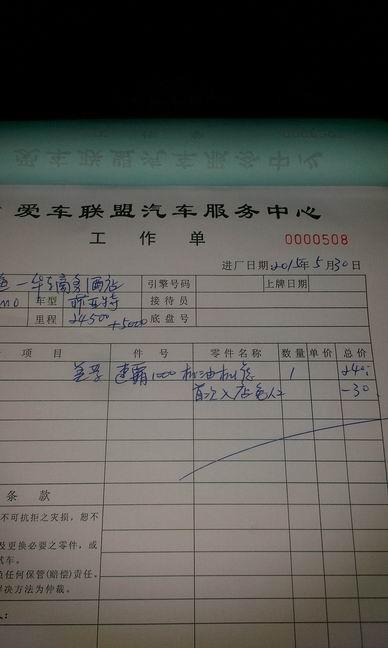 爱车联盟汽车服务中心
工作单
0000508
进厂日期:2015年5月30日
引擎号码 上牌日期
车型 菲亚特 接待员
里程 24500 +5000 底盘号
项目 件号 零件名称 数量 单价 总价
速霸1000 机油机滤 1 240
首次入店免人工 -30
条款
不可抗拒之灾损,恕不
及更换必要之零件,或
试车。
负任何保管(赔偿)责任。
解决方法为仲裁。